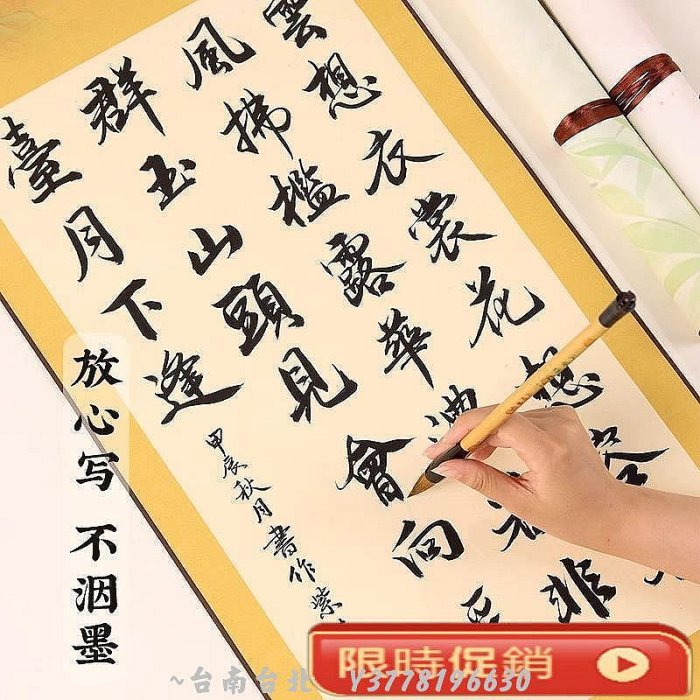 雲想衣裳花想容
風拂檻露華濃若非
群玉山頭見會向
臺月下逢
甲辰秋月書作紫
放心写 不洇墨
限時促銷
~台南台北
Y3778196630